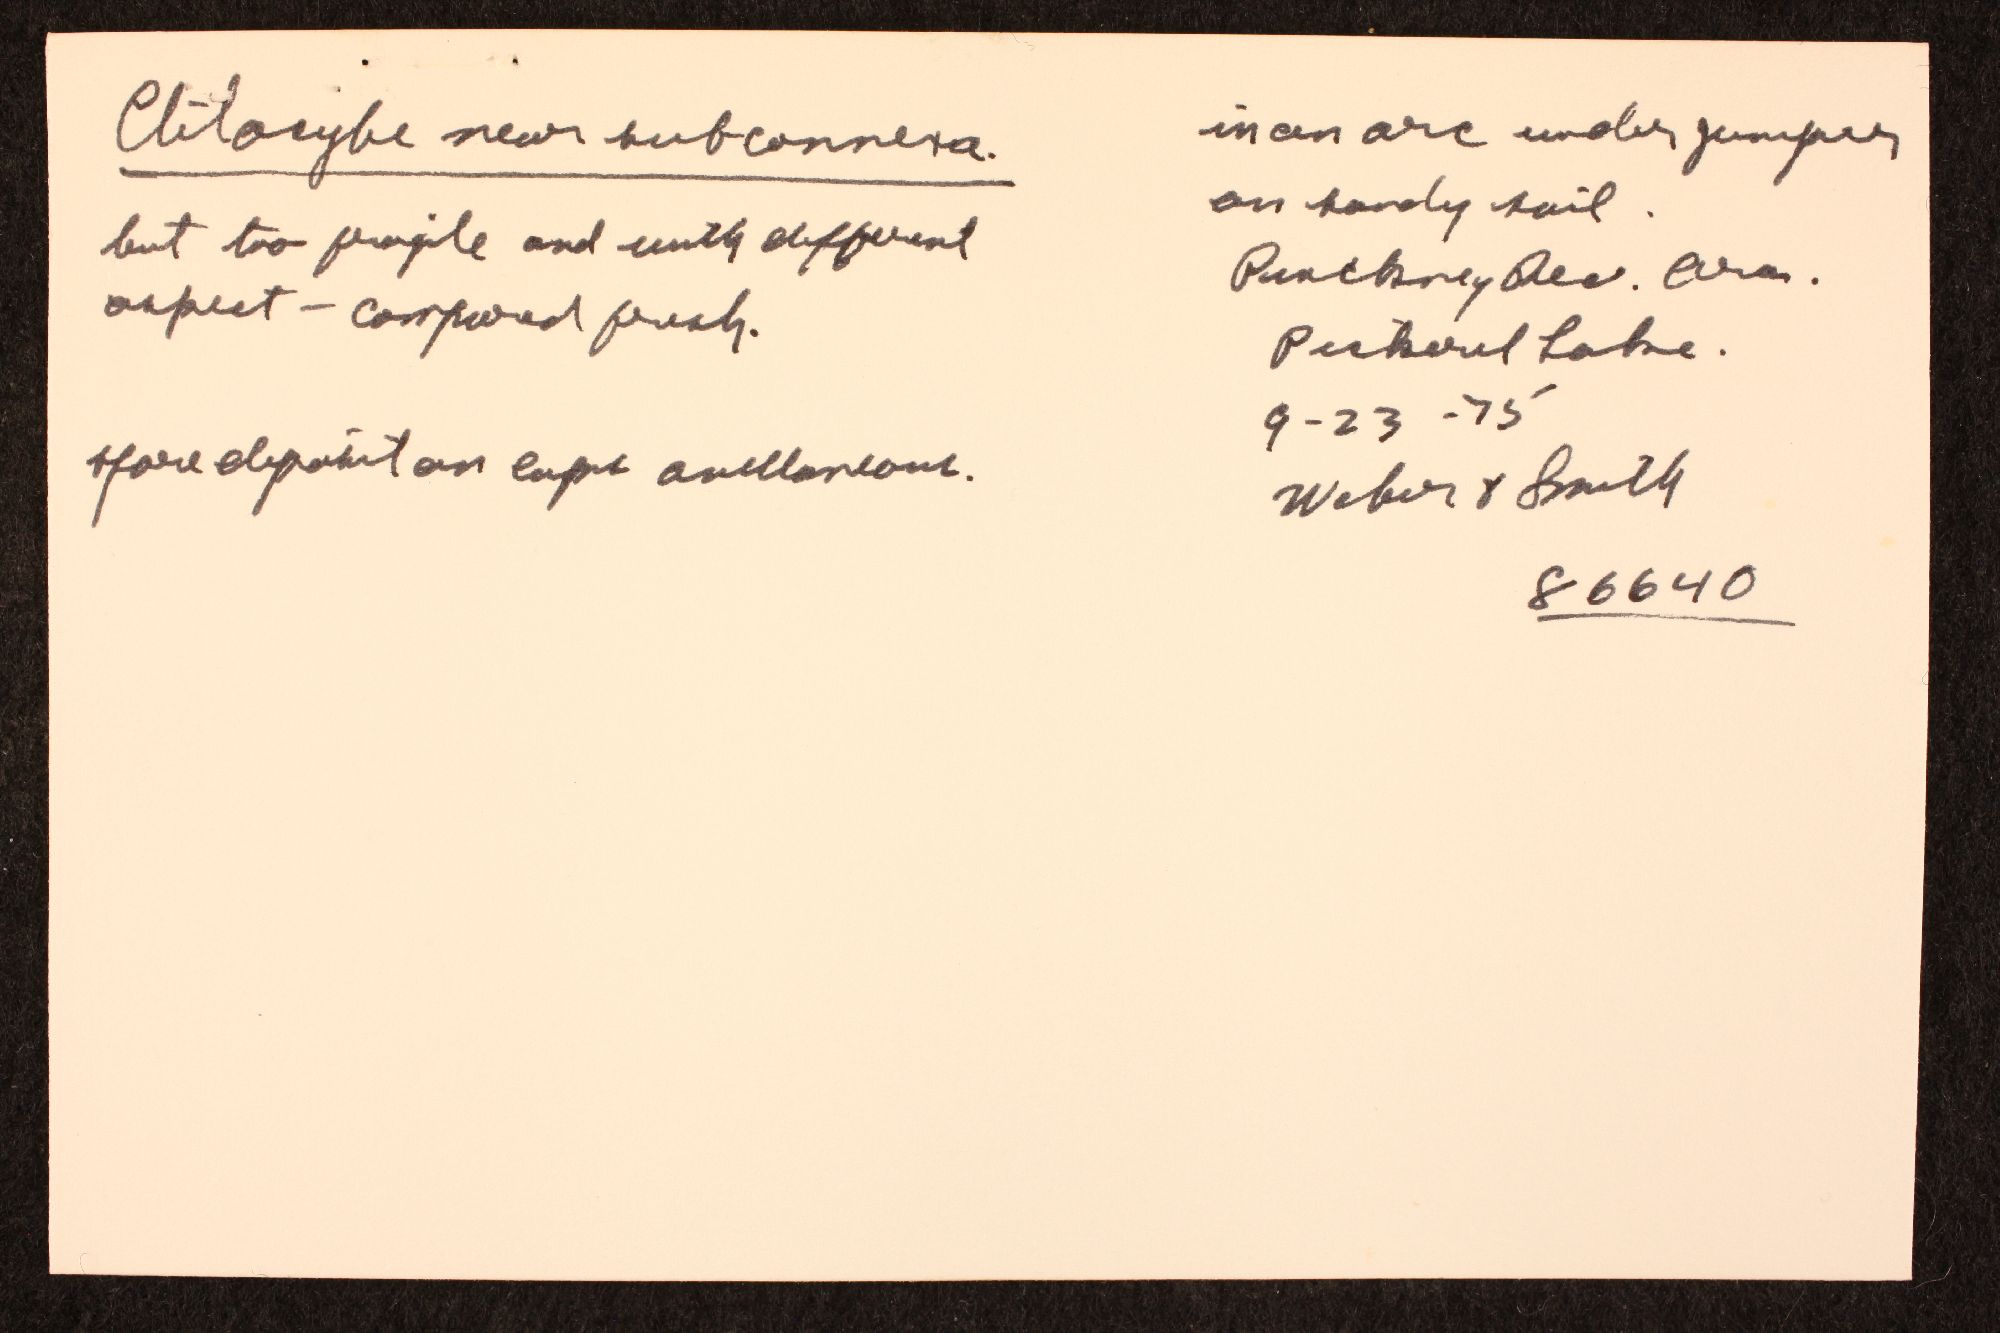 Clitocybe near subconnexa.
but too fragile and with different
aspect – compared fresh.
spore deposit on caps avellaneous.
in an arc under juniper
on sandy soil.
Pinckney Rec. Area.
Pickerel Lake.
9-23-75
Weber & Smith
86640